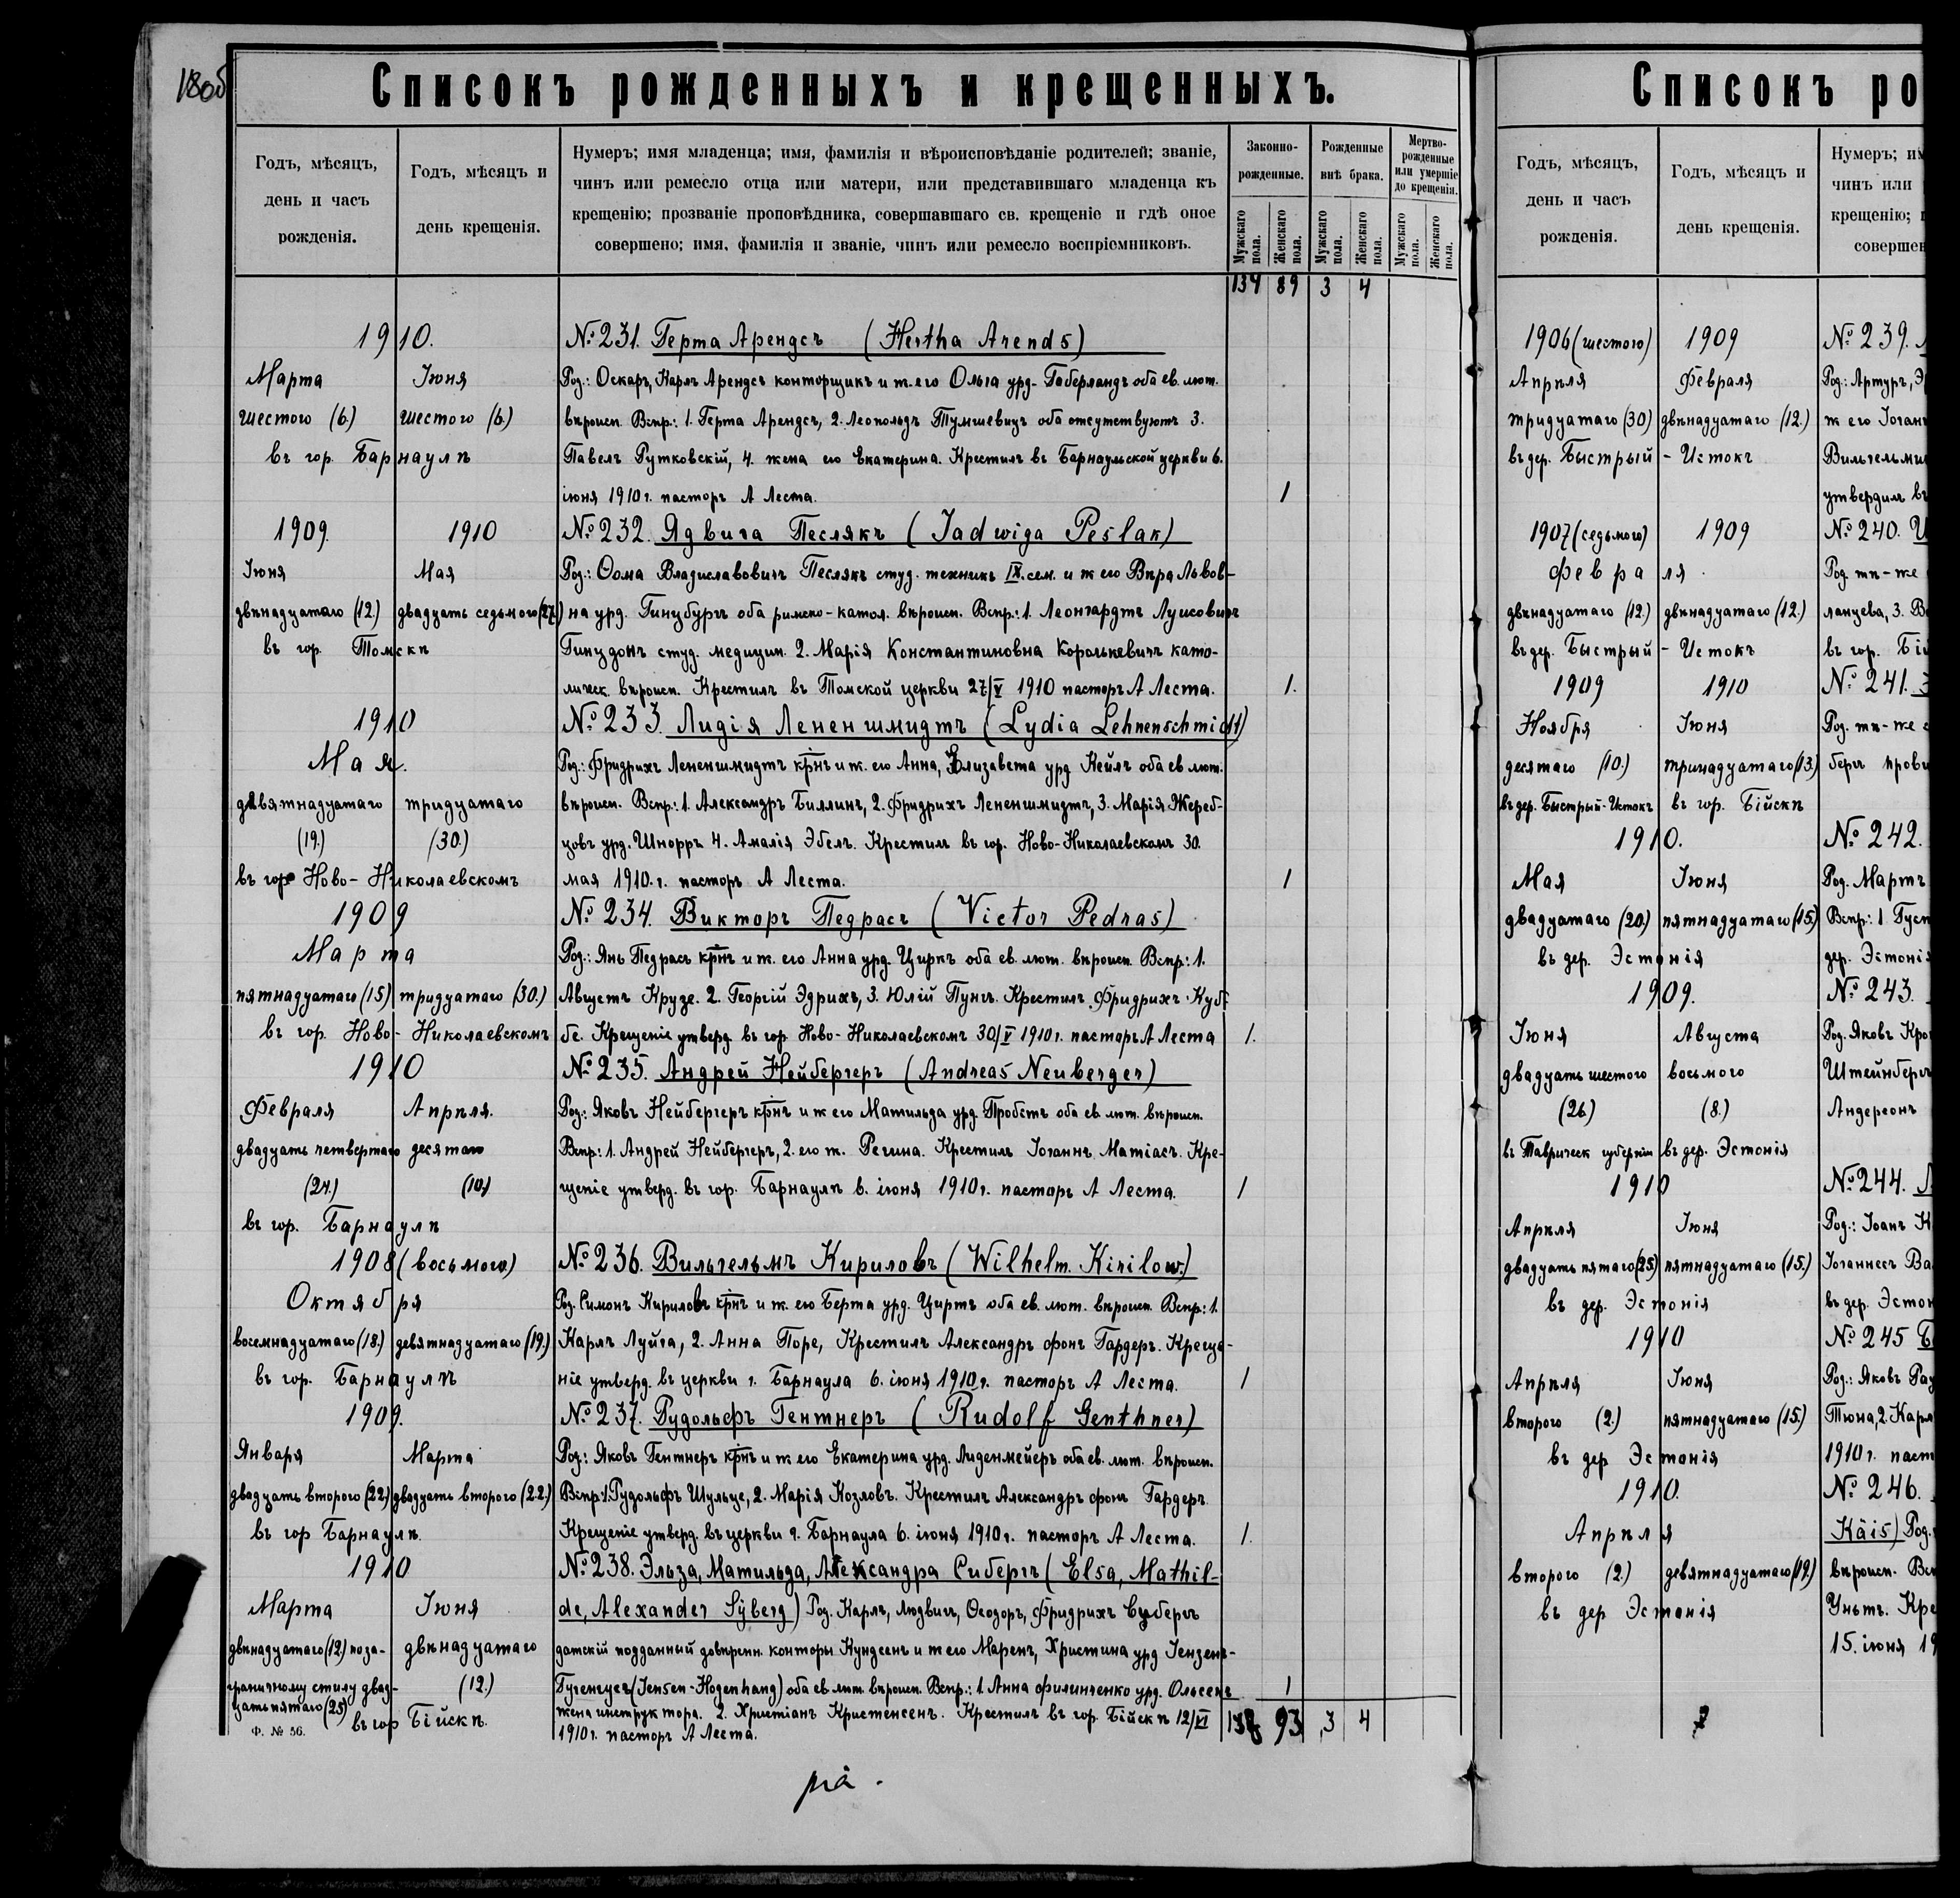 180б
Списокъ рожденныхъ и крещенныхъ.
Годъ, мѣсяцъ, день и часъ рожденія.
Годъ, мѣсяцъ и день крещенія.
Нумеръ; имя младенца; имя, фамилія и вѣроисповѣданіе родителей; званіе,
чинъ или ремесло отца или матери, или представившаго младенца къ
крещенію; прозваніе проповѣдника, совершавшаго св. крещеніе и гдѣ оное
совершено; имя, фамилія и званіе, чинъ или ремесло воспріемниковъ.
Законно-рожденные.
Рожденные внѣ брака.
Мертво-рожденные или умершіе до крещенія.
Мужскаго пола. Женскаго пола. Мужскаго пола. Женскаго пола. Мужскаго пола. Женскаго пола.
134 89 3 4
1910. №231. Герта Арендсъ (Hertha Arends)
Марта Іюня Род.: Оскаръ, Карлъ Арендсъ конторщикъ и ж. его Ольга урд. Габерландъ оба ев. лют.
шестого (6.) шестого (6.) вѣроисп. Вспр.: 1. Герта Арендсъ, 2. Леопольдъ Тумшевицъ оба отсутствуютъ 3.
въ гор. Барнаулѣ Павелъ Рутковскій, 4. жена его Екатерина. Крестилъ въ Барнаульской церкви 6.
іюня 1910 г. пасторъ А Леста. 1
1909. 1910 №232. Ядвига Песлякъ (Jadwiga Peslak)
Іюня Мая Род.: Ѳома Владиславовичъ Песлякъ студ. техникъ IX. сем. и ж его Вѣра Львов-
двѣнадцатаго (12.) двадцать седьмого (27.) на урд. Гинцбургъ оба римско-катол. вѣроисп. Вспр.: 1. Леонгардтъ Луисовичъ
въ гор. Томскѣ Гинцдонъ студ. медицин. 2. Марія Константиновна Королькевичъ като-
лическ. вѣроисп. Крестилъ въ Томской церкви 27/V 1910 пасторъ А Леста. 1.
1910 №233. Лидія Лененшмидтъ (Lydia Lehnenschmidt)
Мая. Род.: Фридрихъ Лененшмидтъ крнъ и ж. его Анна, Елизавета урд Кейлъ оба ев лют.
девятнадцатаго тридцатаго вѣроисп. Вспр.: 1. Александръ Биллинъ, 2. Фридрихъ Лененшмидтъ, 3. Марія Жереб-
(19.) (30.) цовъ урд. Шнорръ 4. Амалія Эбелъ. Крестилъ въ гор. Ново-Николаевскомъ 30.
въ гор Ново-Николаевскомъ мая 1910. г. пасторъ А Леста. 1
1909 №234. Викторъ Педрасъ (Victor Pedras)
Марта Род.: Янъ Педрасъ крнъ и ж. его Анна урд. Циркъ оба ев. лют. вѣроисп. Вспр.: 1.
пятнадцатаго (15) тридцатаго (30.) Августъ Крузе. 2. Георгій Эдрихъ, 3. Юлій Пунъ. Крестилъ Фридрихъ Куб-
въ гор. Ново-Николаевскомъ бе. Крещеніе утверд. въ гор. Ново-Николаевскомъ 30/V 1910 г. пасторъ А Леста 1.
1910 №235. Андрей Нейбергеръ (Andreas Neuberger)
Февраля Апрѣля. Род.: Яковъ Нейбергеръ крнъ и ж его Матильда урд. Пробстъ оба ев. лют. вѣроисп.
двадцать четвертаго десятаго Вспр: 1. Андрей Нейбергеръ, 2. его ж. Регина. Крестилъ Іоганнъ Матіасъ. Кре-
(24.) (10.) щеніе утверд. въ гор. Барнаулѣ 6. іюня 1910 г. пасторъ А Леста. 1
въ гор. Барнаулѣ
1908 (восьмого) №236. Вильгельмъ Кириловъ (Wilhelm. Kirilow.)
Октября Род. Симонъ Кириловъ крнъ и ж. его Берта урд. Циртъ оба ев. лют. вѣроисп. Вспр.: 1.
восемнадцатаго (18.) девятнадцатаго (19.) Карлъ Луйга, 2. Анна Поре, Крестилъ Александръ фонъ Гардеръ. Креще-
въ гор. Барнаулѣ ніе утверд. въ церкви г. Барнаула 6. іюня 1910 г. пасторъ А Леста. 1
1909. №237. Рудольфъ Гентнеръ (Rudolf Genthner)
Января Марта Род: Яковъ Гентнеръ крнъ и ж его Екатерина урд. Лиденмейеръ оба ев. лют. вѣроисп.
двадцать второго (22.) двадцать второго (22.) Вспр: 1. Рудольфъ Шульце, 2. Марія Козловъ. Крестилъ Александръ фонъ Гардеръ.
въ гор Барнаулѣ. Крещеніе утверд. въ церкви г. Барнаула 6. іюня 1910 г. пасторъ А Леста. 1.
1910 №238. Эльза, Матильда, Александра Сибергъ (Elsa, Mathil-
Марта Іюня de, Alexander Sÿberg) Род. Карлъ, Людвигъ, Ѳеодоръ, Фридрихъ Сибергъ
двѣнадцатаго (12.) по за- двѣнадцатаго датскій подданный довѣренн. конторы Кундсенъ и ж его Маренъ, Христина урд Іензенъ-
граничному стилу двад- (12.) Гугенгусъ (Jensen-Hogenhang) оба ев. лют. вѣроисп. Вспр.: 1. Анна Филинченко урд. Ольсенъ 1
цать пятаго (25) въ гор Бійскѣ. жена инструктора. 2. Христіанъ Кристенсенъ. Крестилъ въ гор. Бійскѣ 12/VI
Ф. № 56. 1910 г. пасторъ А Леста. 138 93 3 4
Списокъ ро
Годъ, мѣсяцъ, день и часъ рожденія.
Годъ, мѣсяцъ и день крещенія.
Нумеръ; им
чинъ или
крещенію; п
совершен
1906 (шестого) 1909 №239.
Апрѣля Февраля Род: Артуръ, Э
тридцатаго (30) двѣнадцатаго (12.) ж его Іоган
въ дер. Быстрый-Истокъ Вильгельми
утвердилъ въ
1907 (седьмого) 1909 №240.
Февраля Род. тѣ-же
двѣнадцатаго (12.) двѣнадцатаго (12.) ланцева, 3. В
въ дер. Быстрый-Истокъ въ гор. Бій
1909 1910 №241.
Ноября Іюня Род. тѣ-же
десятаго (10.) тринадцатаго (13.) бергъ прови
въ дер. Быстрый-Истокъ въ гор. Бійскѣ
1910. №242.
Мая Іюня Род. Мартъ
двадцатаго (20.) пятнадцатаго (15.) Вспр: 1 Густ
въ дер. Эстонія дер. Эстонія
1909. №243.
Іюня Августа Род. Яковъ Кро
двадцать шестого восьмого Штейнберг
(26.) (8.) Андерсонъ
въ Таврическ губерніи въ дер. Эстонія
1910 №244.
Апрѣля Іюня Род.: Іоанъ К
двадцать пятаго (25) пятнадцатаго (15.) Іоганнесъ Ва
въ дер. Эстонія въ дер. Эстон
1910 №245
Апрѣля Іюня Род.: Яковъ Ра
второго (2.) пятнадцатаго (15.) Тюна, 2. Карл
въ дер Эстонія 1910 г. паст
1910. №246.
Апрѣля Käis) Род.
второго (2.) девятнадцатаго (19.) вѣроисп. Вс
въ дер Эстонія Уньтъ. Кре
15. іюня 19